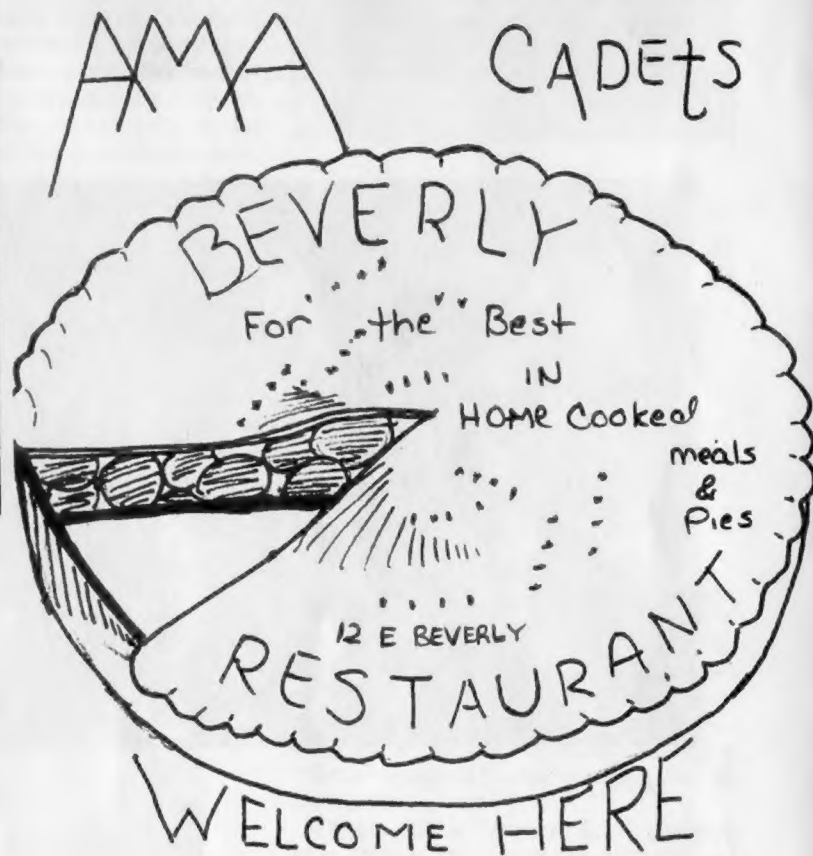 AMA CADEtS
BEVERLY
For the Best
IN
HOME COOKed
meals
&
Pies
12 E BEVERLY
RESTAURANT
WELCOME HERE